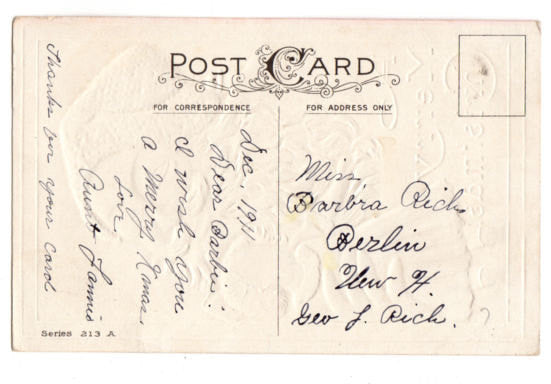 POST CARD
FOR CORRESPONDENCE
FOR ADDRESS ONLY
Dec, 1911
Dear Barbie:
I wish you
a Merry Xmas.
Love
Aunt Fannie
Thanks for your card
Miss
Barbra Rich
Berlin
New H.
Geo J. Rich. ?
Series 213 A